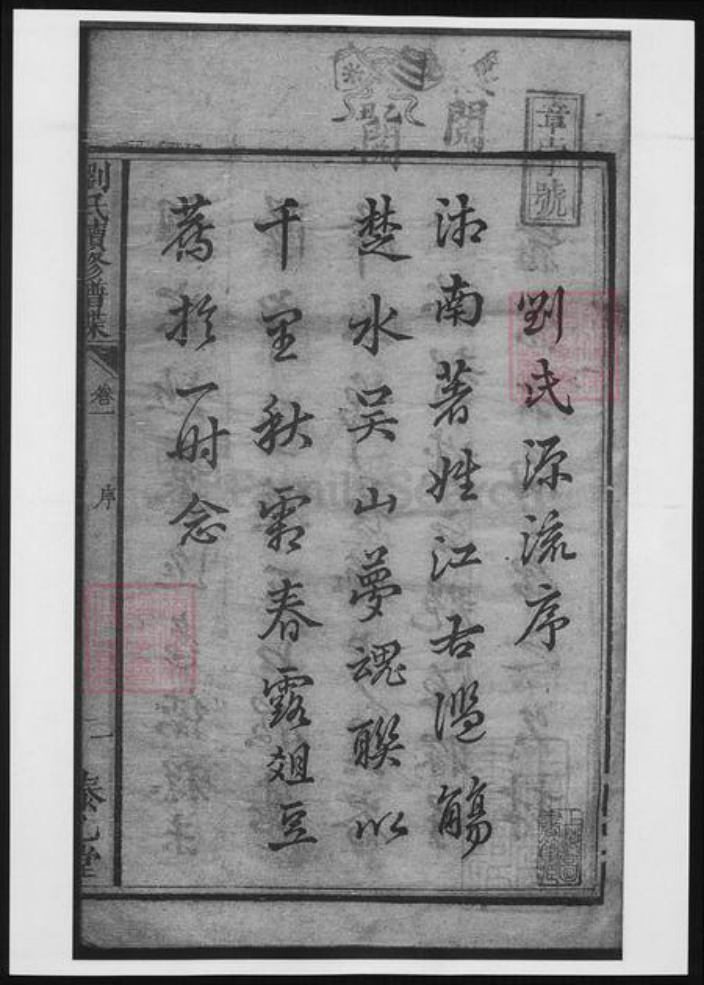 章字號
劉氏源流序
沛南著姓江右濫觴
楚水吴山夢魂聯以
千里秋霜春露爼豆
薦於一时念
劉氏續修譜牒
卷一
序
一